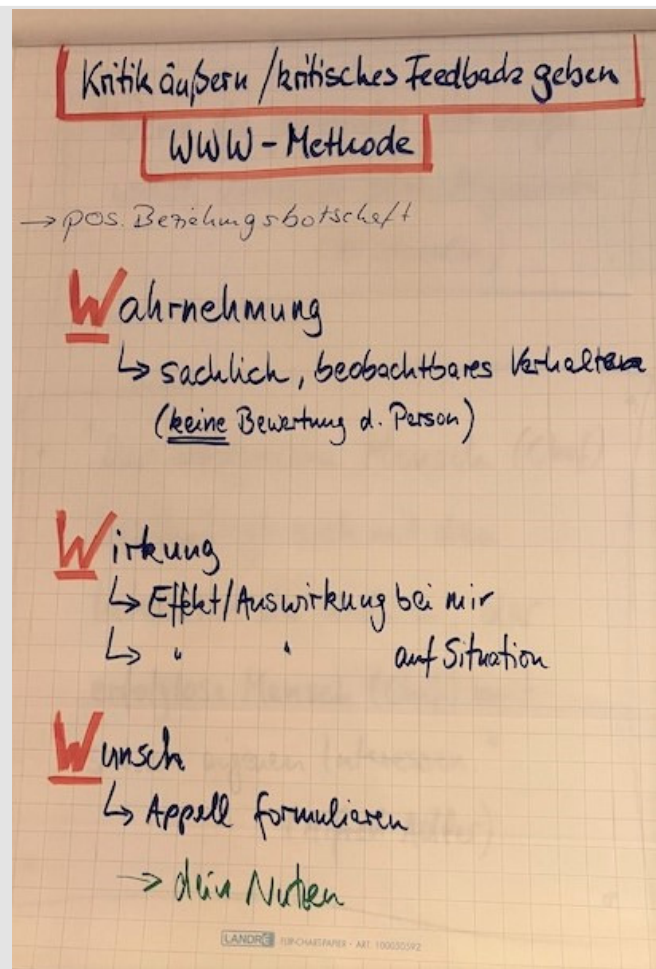 Kritik äußern / kritisches Feedback geben
WWW - Methode
→ pos. Beziehungsbotschaft
Wahrnehmung
↳ sachlich, beobachtbares Verhalten
(keine Bewertung d. Person)
Wirkung
↳ Effekt/Auswirkung bei mir
↳ " " auf Situation
Wunsch
↳ Appell formulieren
→ dein Nutzen
LANDRÉ FLIPCHARTPAPIER - ART. 100050592